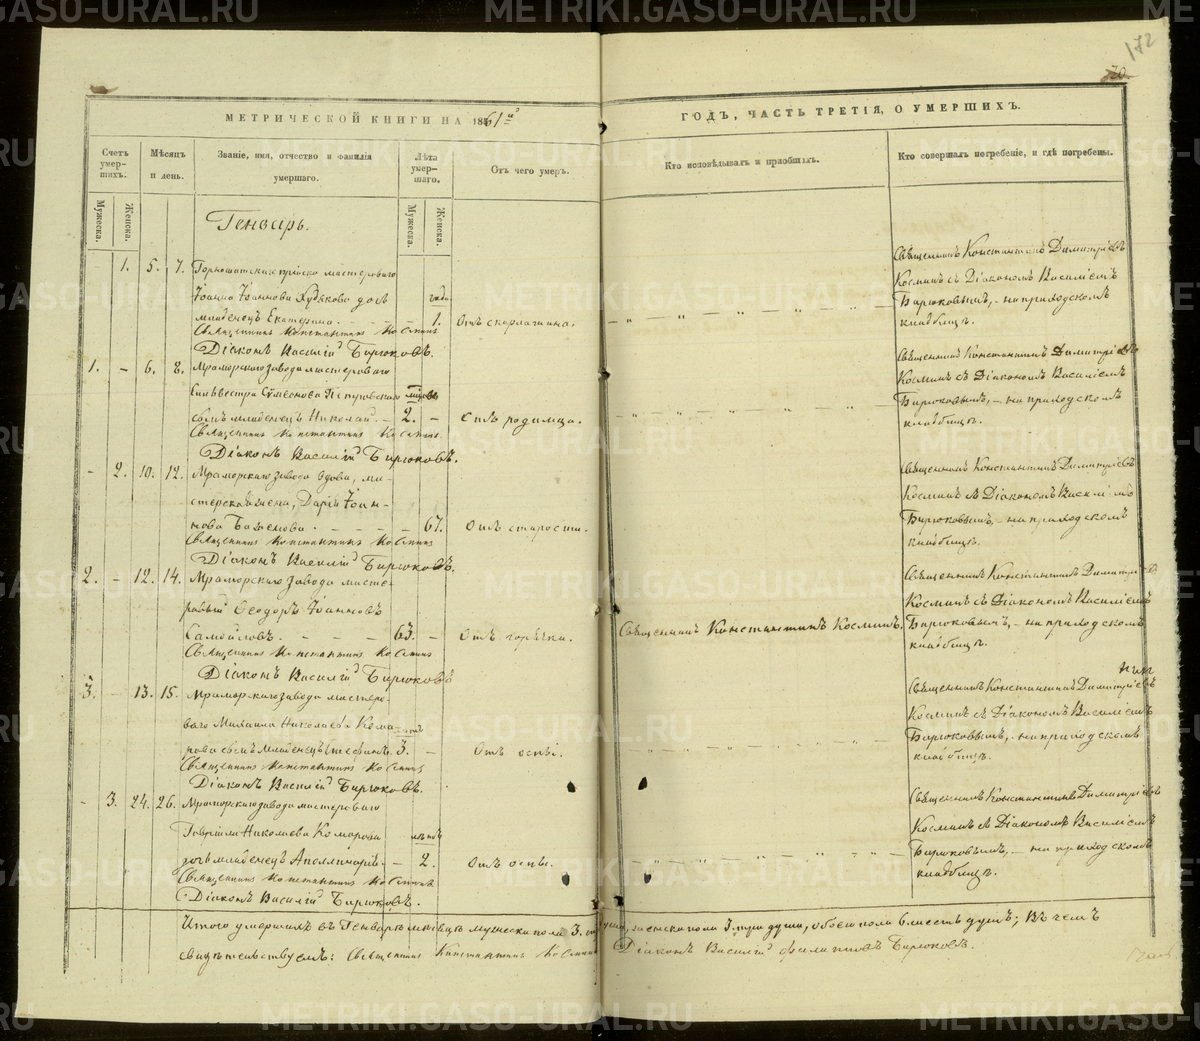 172
70
МЕТРИЧЕСКОЙ КНИГИ НА 1861й
ГОДЪ, ЧАСТЬ ТРЕТІЯ, О УМЕРШИХЪ.
Счетъ умер-
шихъ.
Мѣсяцъ
и день.
Званіе, имя, отчество и фамилія
умершаго.
Лѣта
умер-
шаго.
Отъ чего умеръ.
Кто исповѣдывалъ и пріобщалъ.
Кто совершалъ погребеніе, и гдѣ погребены.
Мужеска.
Женска.
Мужеска.
Женска.
Генварь.
1. 5. 7. мастероваго
Іоанна Іоаннова Худякова дочь года
младенецъ Екатерина. 1. Отъ скарлатина.
Священникъ Константинъ Косминъ
Діаконъ Василій Бирюковъ.
Священникъ Константинъ Димитріевъ
Косминъ съ Діакономъ Василіемъ
Бирюковымъ, - на приходскомъ
кладбищѣ.
1. - 6. 8. Мраморскаго завода мастероваго
Сильвестра Сѵмеонова
сынъ младенецъ Николай. - 2. - Отъ родимца.
Священникъ Константинъ Косминъ
Діаконъ Василій Бирюковъ.
Священникъ Константинъ Димитріевъ
Косминъ съ Діакономъ Василіемъ
Бирюковымъ, - на приходскомъ
кладбищѣ.
- 2. 10. 12. Мраморскаго завода вдова, ма-
стерская жена, Дарія Іоан-
нова Баженова. - 67. Отъ старости.
Священникъ Константинъ Косминъ
Діаконъ Василій Бирюковъ.
Священникъ Константинъ Димитріевъ
Косминъ съ Діакономъ Василіемъ
Бирюковымъ, - на приходскомъ
кладбищѣ.
2. - 12. 14. Мраморскаго завода масте-
ровый Ѳеодоръ Іоанновъ
Самойловъ. 63. - Отъ горячки. Священникъ Константинъ Косминъ.
Священникъ Константинъ Косминъ
Діаконъ Василій Бирюковъ
Священникъ Константинъ Димитріевъ
Косминъ съ Діакономъ Василіемъ
Бирюковымъ, - на приходскомъ
кладбищѣ.
3. - 13. 15. Мраморскаго завода мастеро-
ваго Михаила Николаева Кома-
рова сынъ младенецъ Стефанъ. 3. - Отъ оспы.
Священникъ Константинъ Косминъ
Діаконъ Василій Бирюковъ.
Священникъ Константинъ Димитріевъ
Косминъ съ Діакономъ Василіемъ
Бирюковымъ, - на приходскомъ
кладбищѣ.
- 3. 24. 26. Мраморскаго завода мастероваго
Гавріила Николаева Комарова
дочь младенецъ Аполлинарія. - 2. Отъ оспы.
Священникъ Константинъ Косминъ
Діаконъ Василій Бирюковъ.
Священникъ Константинъ Димитріевъ
Косминъ съ Діакономъ Василіемъ
Бирюковымъ, - на приходскомъ
кладбищѣ.
Итого умершихъ въ Генварѣ мѣсяцѣ мужеска пола 3. женска пола 3 три души, обоего пола 6 шесть душъ; Въ чемъ
свидѣтельствуемъ: Священникъ Константинъ Косминъ Діаконъ Василій Филипповъ Бирюковъ.
METRIKI.GASO-URAL.RU